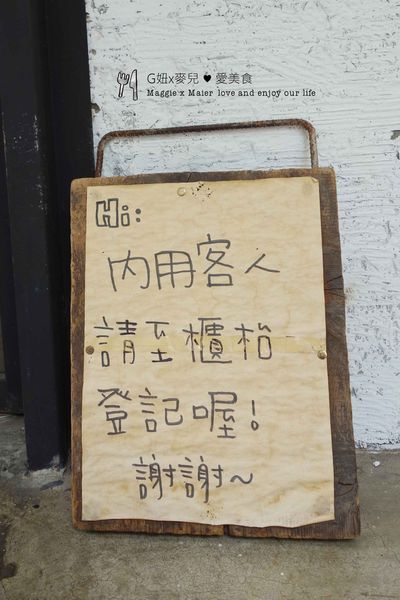 G妞x麥兒♥愛美食
Maggie x Maier love and enjoy our life
Hi:
內用客人
請至櫃枱
登記喔!
謝謝~